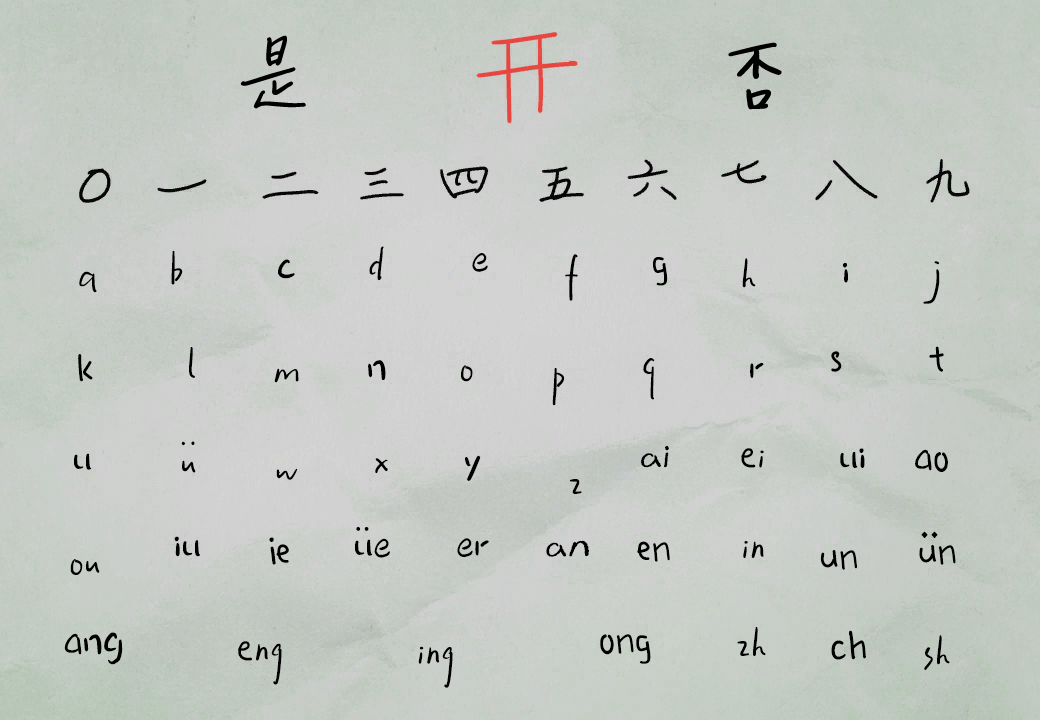 是 开 否
0 一 二 三 四 五 六 七 八 九
a b c d e f g h i j
k l m n o p q r s t
u ü w x y z ai ei ui ao
ou iu ie üe er an en in un ün
ang eng ing ong zh ch sh